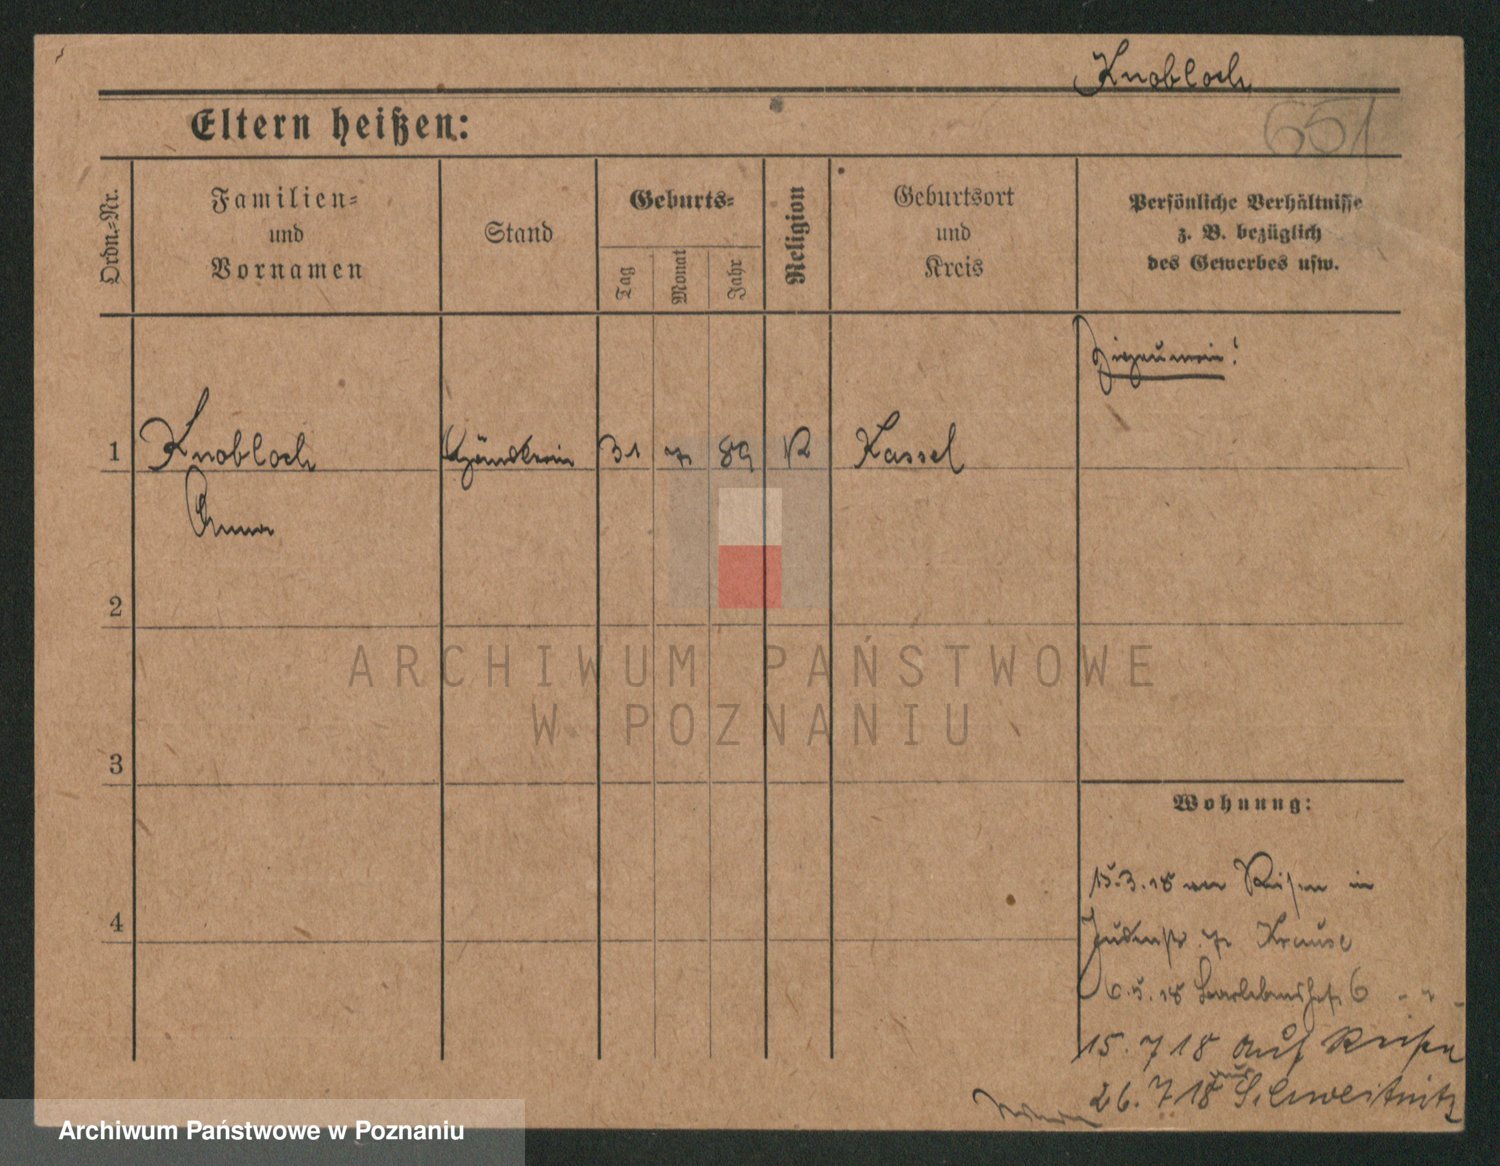 Knobloch
651
Eltern heißen:
Ordn.-Nr.
Familien-
und
Vornamen
Stand
Geburts-
Tag
Monat
Jahr
Religion
Geburtsort
und
Kreis
Persönliche Verhältnisse
z. B. bezüglich
des Gewerbes usw.
Zigeunerin!
1 Knobloch Händlerin 31 7 89 K Kassel
Anna
2
3
4
Wohnung:
15.3.18 von Reisen in
Judenstr. 7 Krause
6.5.18 6 - " -
15.7 18 auf Reisen
26.7 18 nach
ARCHIWUM PAŃSTWOWE
W POZNANIU
Archiwum Państwowe w Poznaniu